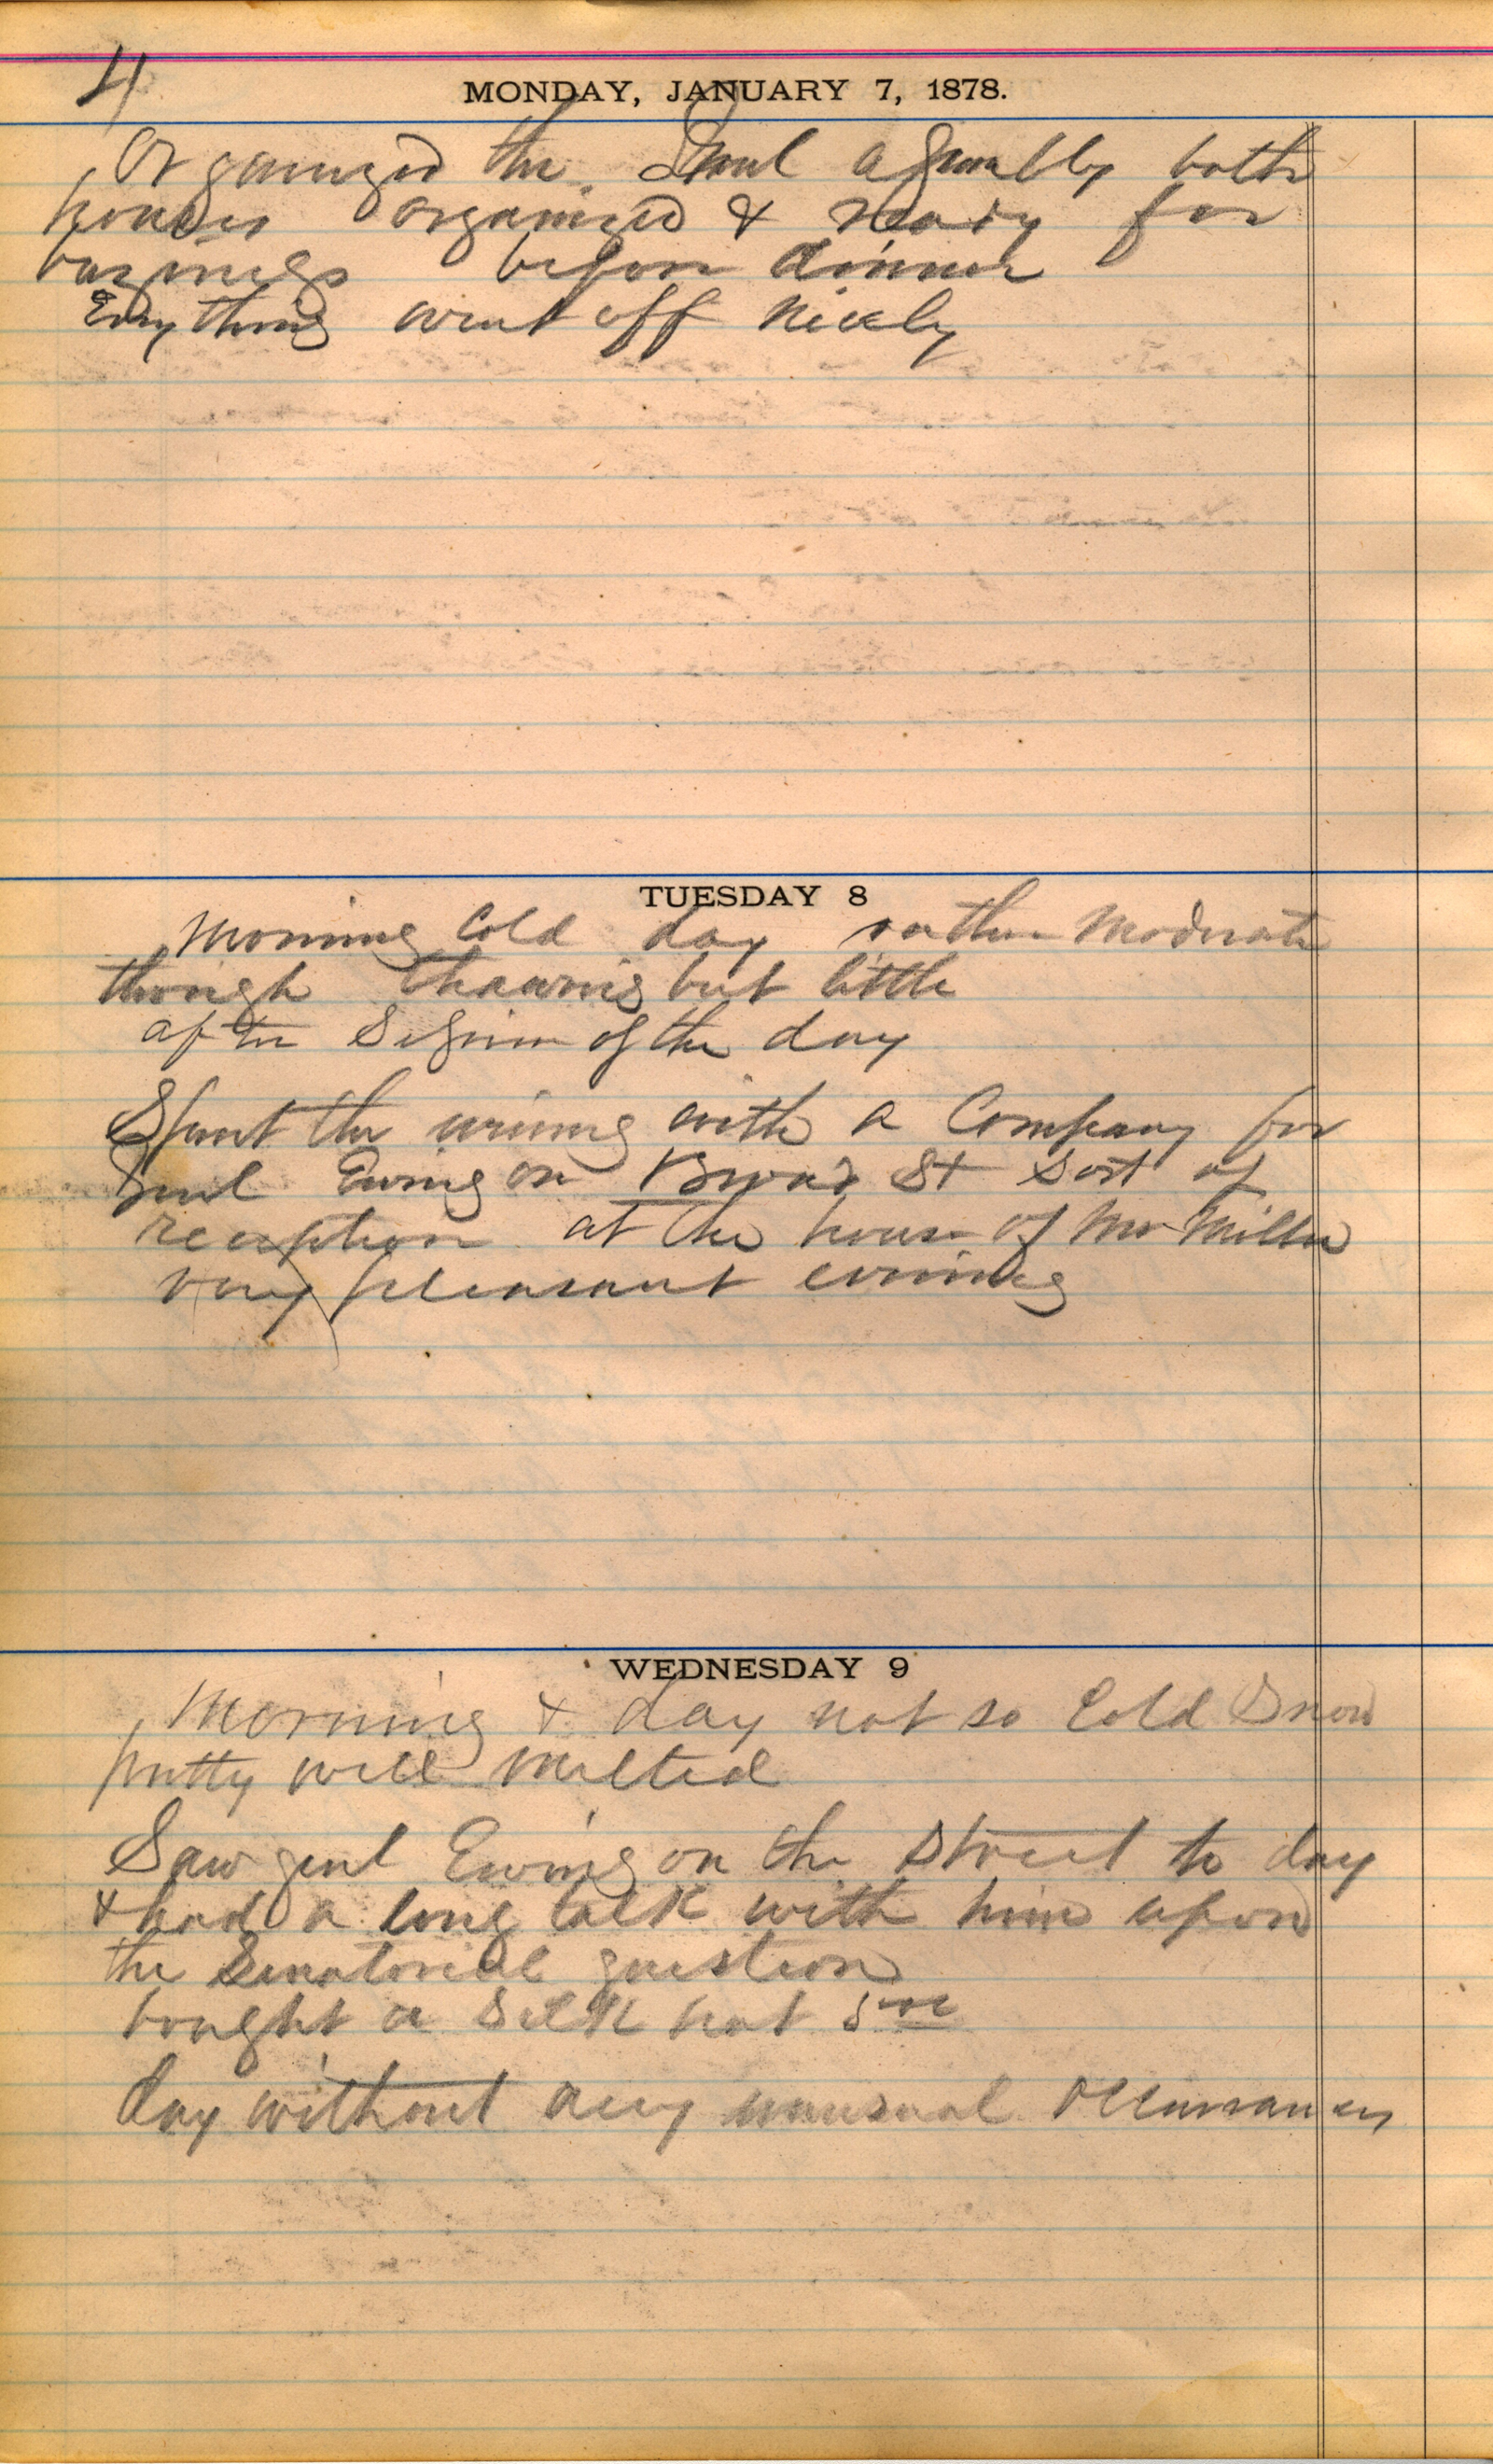 4
MONDAY, JANUARY 7, 1878.
Organized the Genl assembly both
houses organized & ready for
business before dinner
Everything went off nicely
TUESDAY 8
Morning Cold day rather moderate
though thawing but little
after Session of the day
Spent the evening with a Company for
Genl Ewing on Broad St Sort of
reception at the house of Mr Miller
very pleasant evening
WEDNESDAY 9
Morning & day not so Cold Snow
pretty well melted
Saw genl Ewing on the Street to day
& had a long talk with him upon
the Senatorial question
bought a Silk hat 5
day without any unusual occurrances